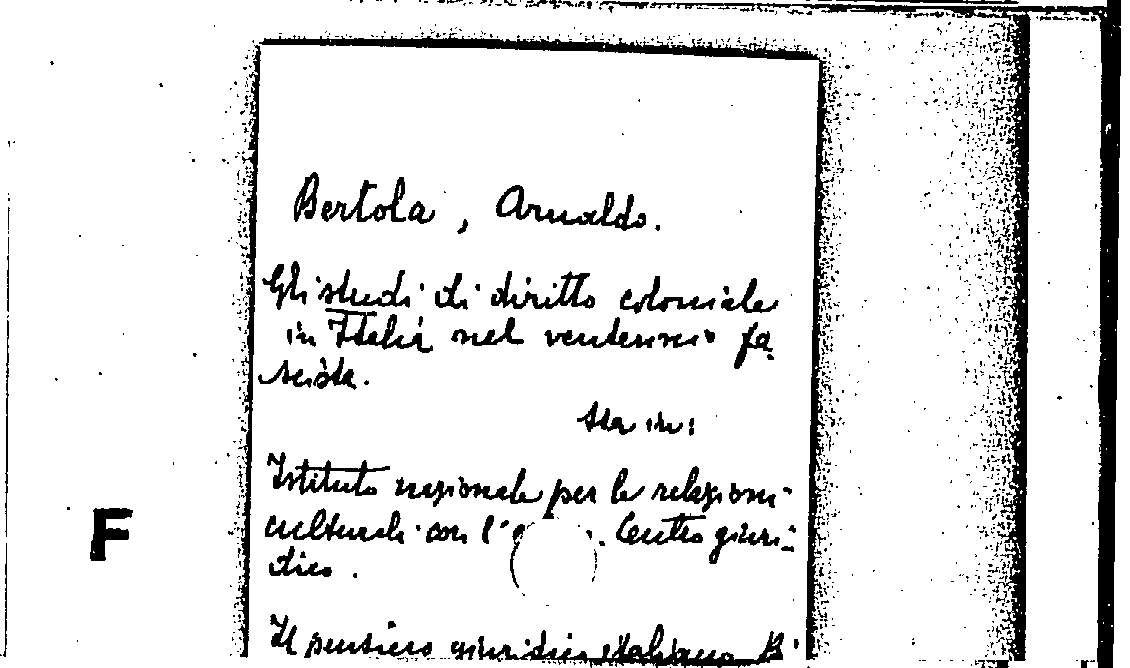 Bertola, Arnaldo.
Gli studi di diritto coloniale
in Italia nel ventennio fa
scista.
Sta in:
Istituto nazionale per le relazioni
culturali con l'
. Centro giuri-
dico.
Il pensiero giuridico italiano
F